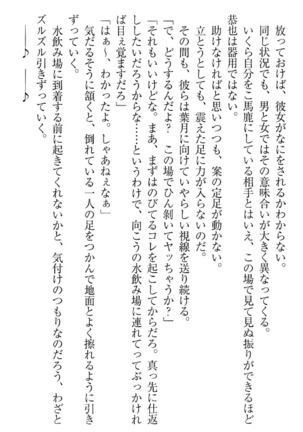 放っておけば、彼女がなにをされるかわからない。
同じ状況でも、男と女ではその意味合いが大きく異なってくる。
いくら自分をこ馬鹿にしている相手とはいえ、この場で見て見ぬ振りができるほど
恭也は器用ではない。
助けなければと思いつつも、案の定足が動かない。
立とうとしても、震えた足に力が入らないのだ。
その間も、彼らは葉月に向けていやらしい視線を送り続ける。
「で、どうするんだよ？　この場でひん剥いてヤッちゃうか？」
「それもいいけどな。まあ、まずはのびてるコレを起こしてからだろ。真っ先に仕返
ししたいだろうからな……というわけで、向こうの水飲み場に連れてってぶっかけれ
ば目ぇ覚ますだろ」
「はぁ〜、わかったよ。しゃあねぇなぁ」
気だるそうに頷くと、倒れている一人の足をつかんで地面とよく擦れるように引き
ずっていく。
水飲み場に到着する前に起きてくれないかと、気付けのつもりなのだろう、わざと
ズルズル引きずっていく。
♪――♪